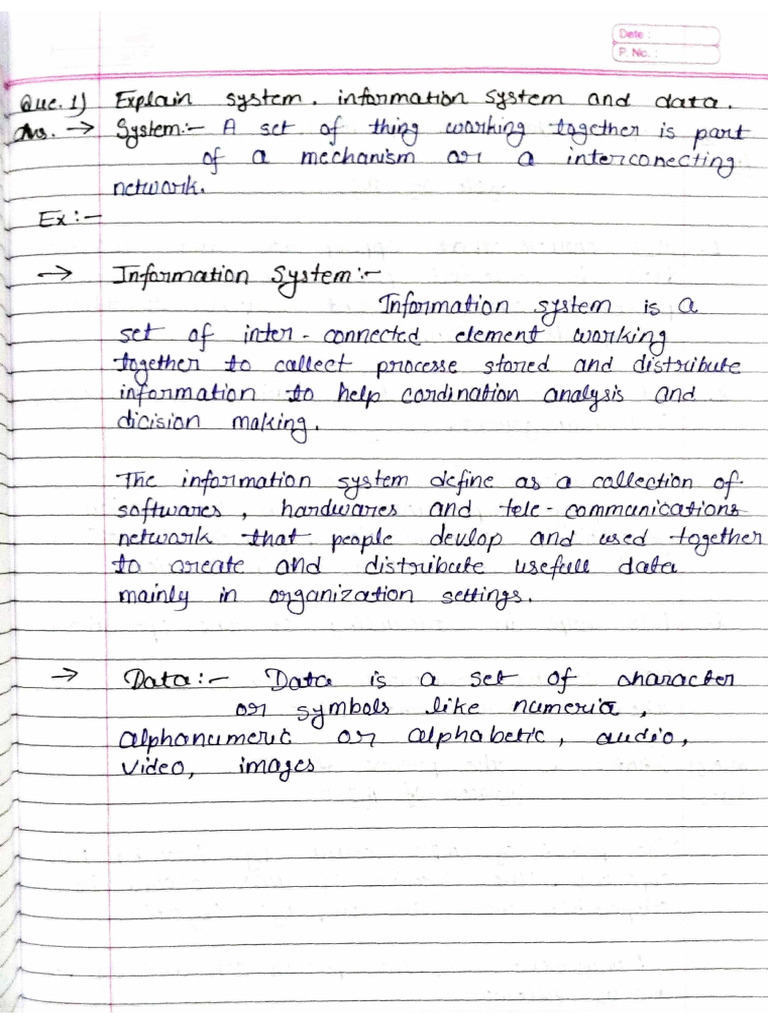 Date :
P. No. :
Que. 1) Explain system. information system and data.
Ans. → System:- A set of thing working together is part
of a mechanism or a interconecting
network.
Ex:-
→ Information System:-
Information system is a
set of inter-connected element working
together to collect processe stored and distribute
information to help cordination analysis and
dicision making.
The information system define as a collection of
softwares, hardwares and tele-communications
network that people devlop and used together
to create and distribute usefull data
mainly in organization settings.
→ Data:- Data is a set of character
or symbols like numeric,
alphanumeric or alphabetic, audio,
video, images